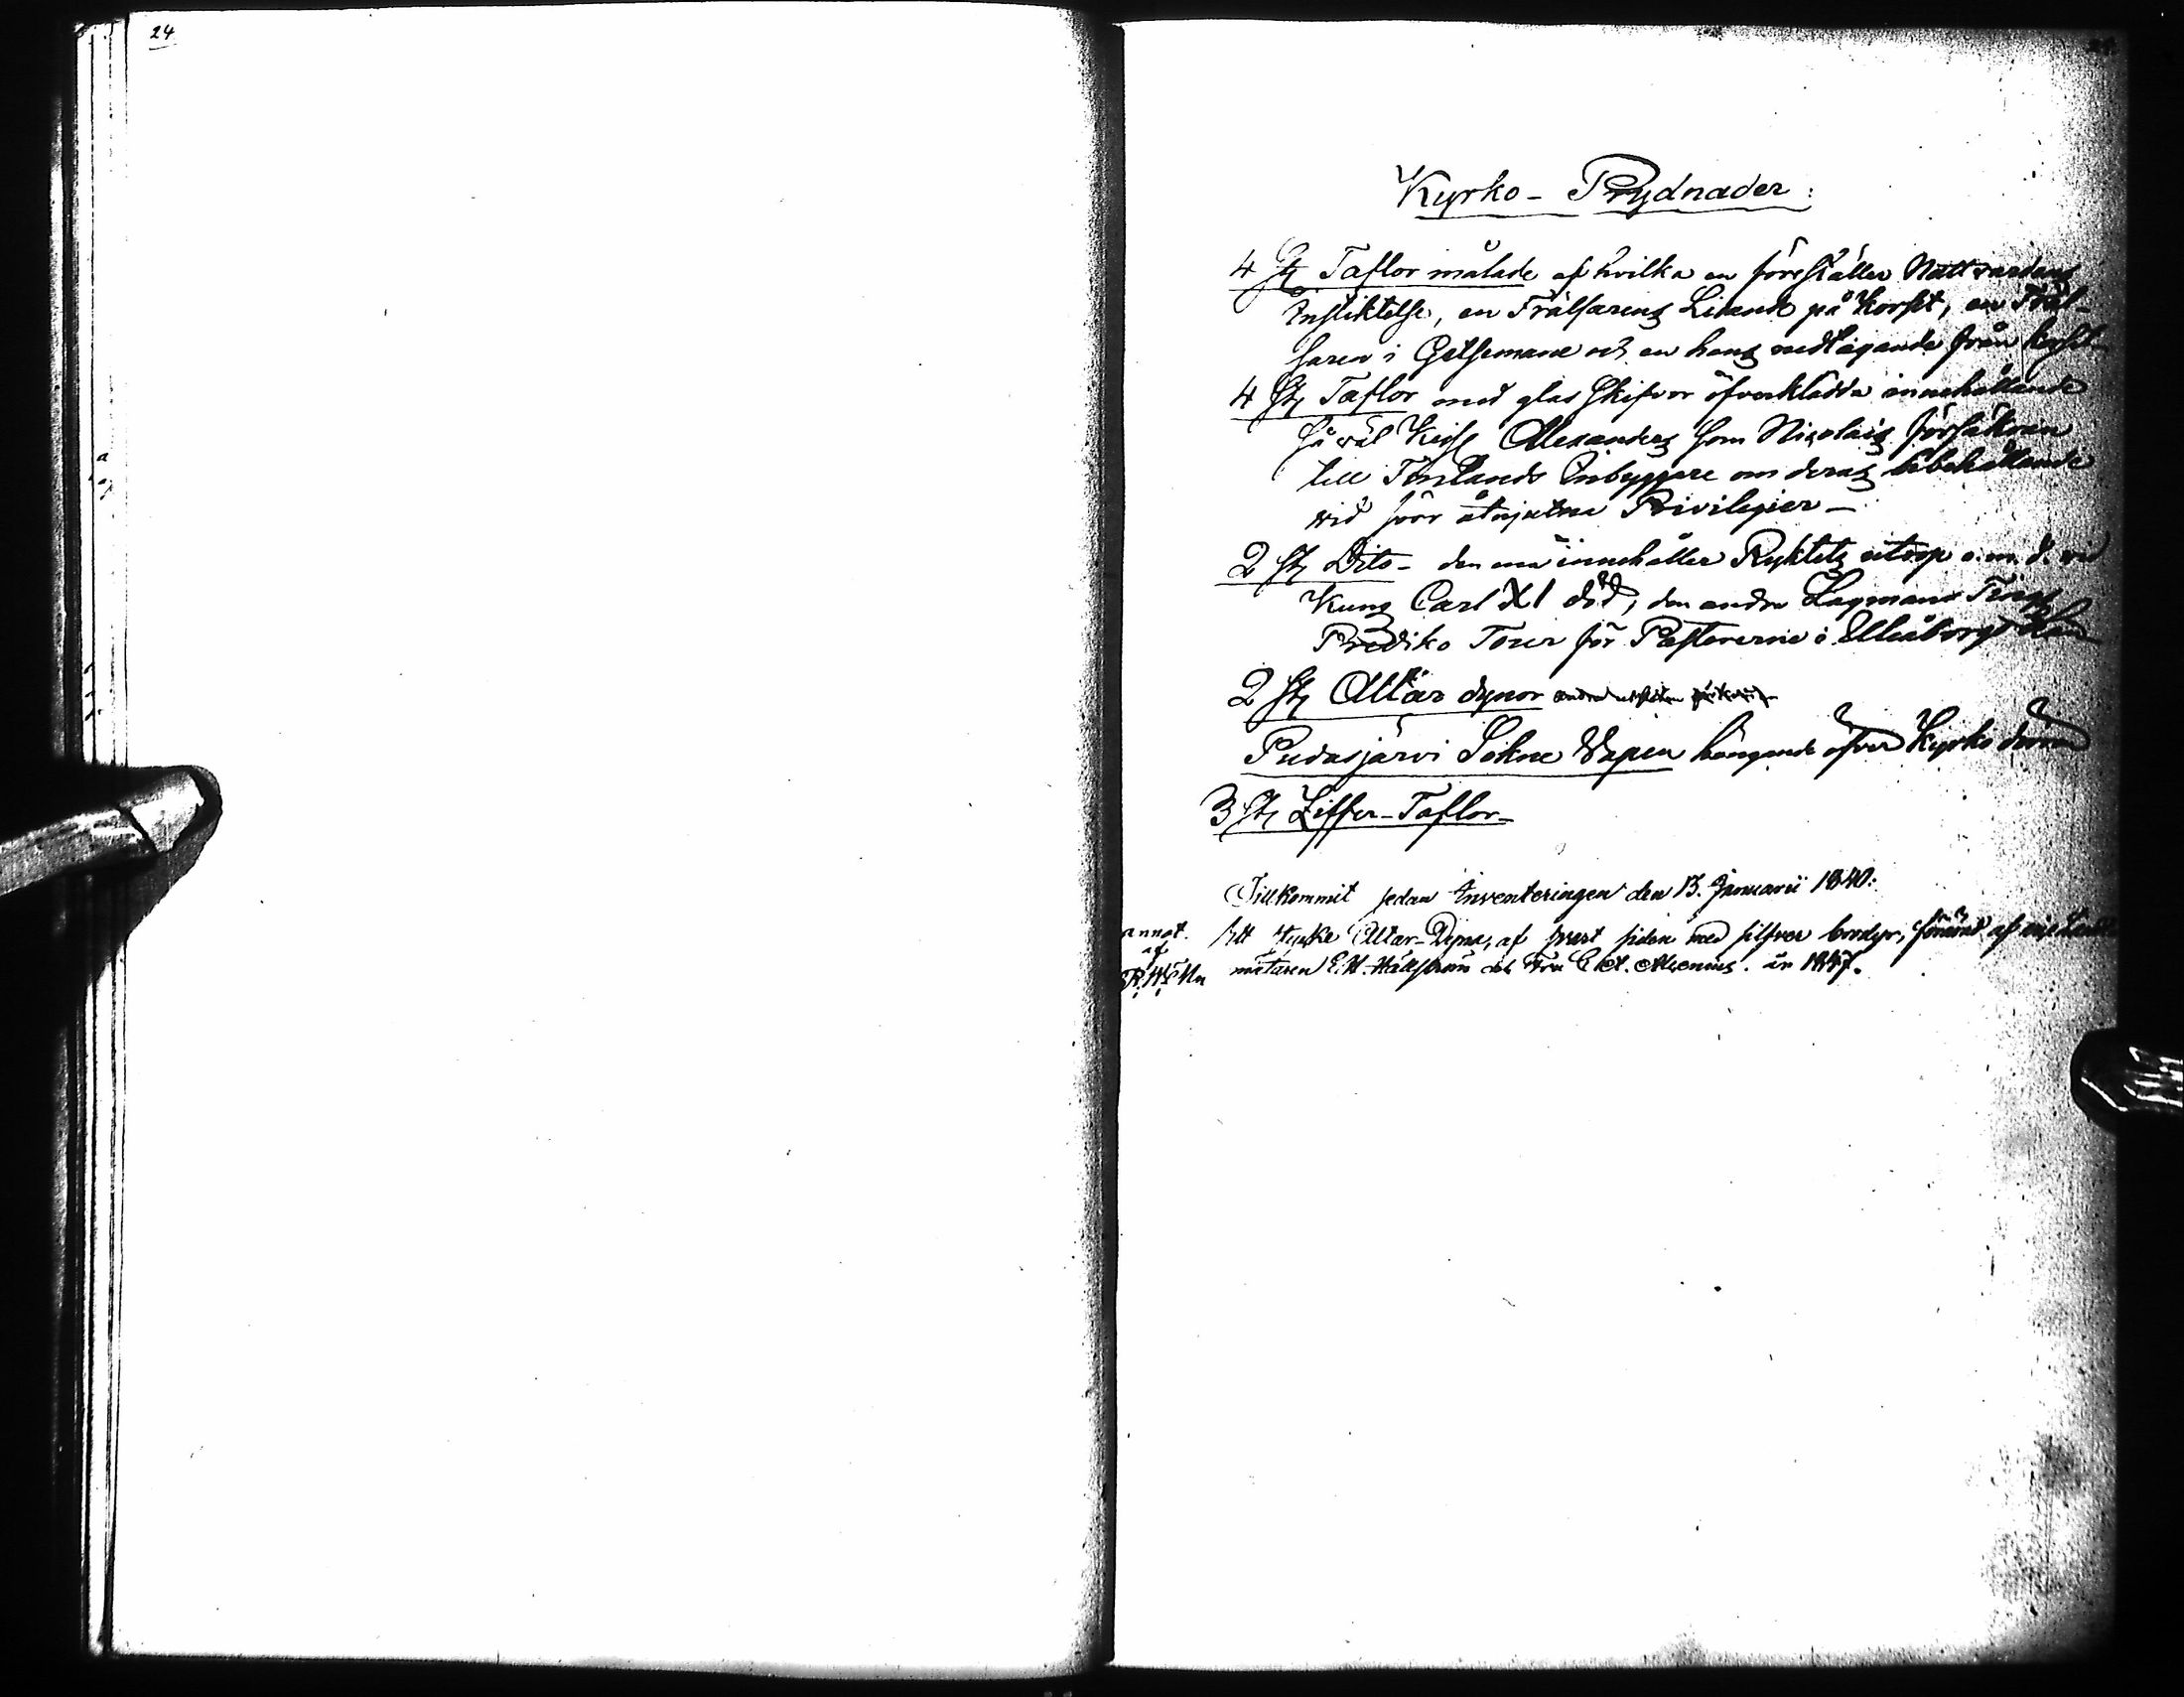 24
Kyrko-Prydnader:
4 st Taflor målade af hvilka en föreställer Nattvardens
Instiktelse, en Frälsarens Lidande på Korset, en Fräl-
saren i Getsemane och en hans nedtagande från korset
4 st Taflor med glas skifvor öfverklädda innehållande
så väl Keis Alexanders som Nicolais försäkran
till Finlands Inbyggare om deras bibehållande
wid förr åtnjutna Privilegier -
2 st Dito - den ena innehåller Ryktets utrop o.m.d. vid
Kung Carl XI död, den andra Lagmans Tings
Prediko Tour för Pastorerne i Uleåborgs Län
2 st Altar dynor
Pudasjärvi Sokne Wapen hängande öfver Kyrko dörren
3 st Ziffer-Taflor-
Tillkommit sedan Inventeringen den 13. Januarii 1840:
annot. Ett stycke Altar-Dyna, af svart siden med silfver brodyr, förärad af
af mätaren E. H. Hällström och Fru C. år 1847.